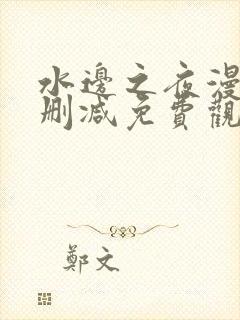 水邊之夜漫
刪減免費觀
鄭文